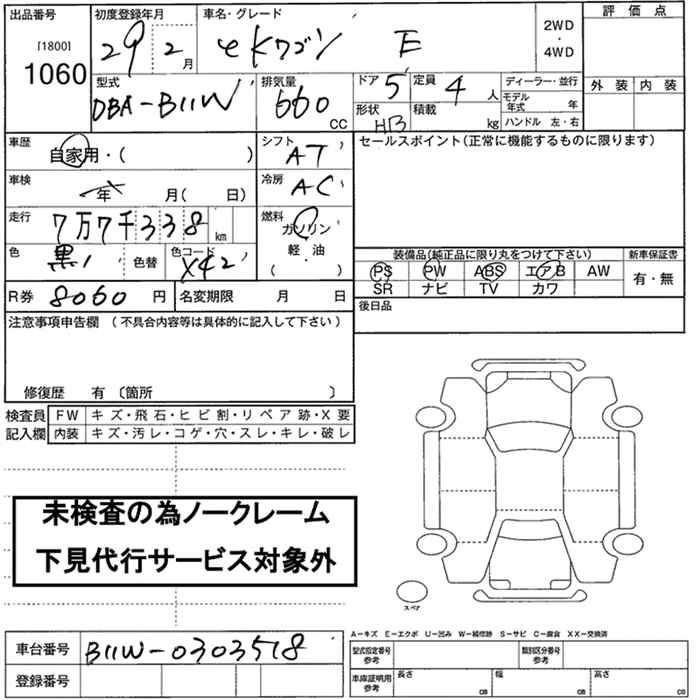 出品番号 初度登録年月 車名・グレード 評価点
[1800] 29 2月 eKワゴン E 2WD・4WD
1060 外装 内装
型式 排気量 ドア 5 定員 4人 ディーラー・並行
DBA-B11W 660cc 形状 HB 積載 kg モデル年式 年
ハンドル 左・右
車歴 自家用・( ) シフト AT セールスポイント(正常に機能するものに限ります)
車検 年 月( 日) 冷房 AC
走行 7万7千338km 燃料 ガソリン
色 黒 色替 色コード X42 軽・油
( ・ )
装備品(純正品に限り丸をつけて下さい) 新車保証書
PS PW ABS エアB AW 有・無
SR ナビ TV カワ
R券 8060円 名変期限 月 日 後日品
注意事項申告欄 (不具合内容等は具体的に記入して下さい)
修復歴 有 〔箇所 〕
検査員 FW キズ・飛石・ヒビ割・リペア跡・X要
記入欄 内装 キズ・汚レ・コゲ・穴・スレ・キレ・破レ
未検査の為ノークレーム
下見代行サービス対象外
スペア
A-キズ E-エクボ U-凹み W-補修跡 S-サビ C-腐食 XX-交換済
車台番号 B11W-0303518 型式指定番号 参考 類別区分番号 参考
登録番号 車庫証明用 参考 長さ cm 幅 cm 高さ cm